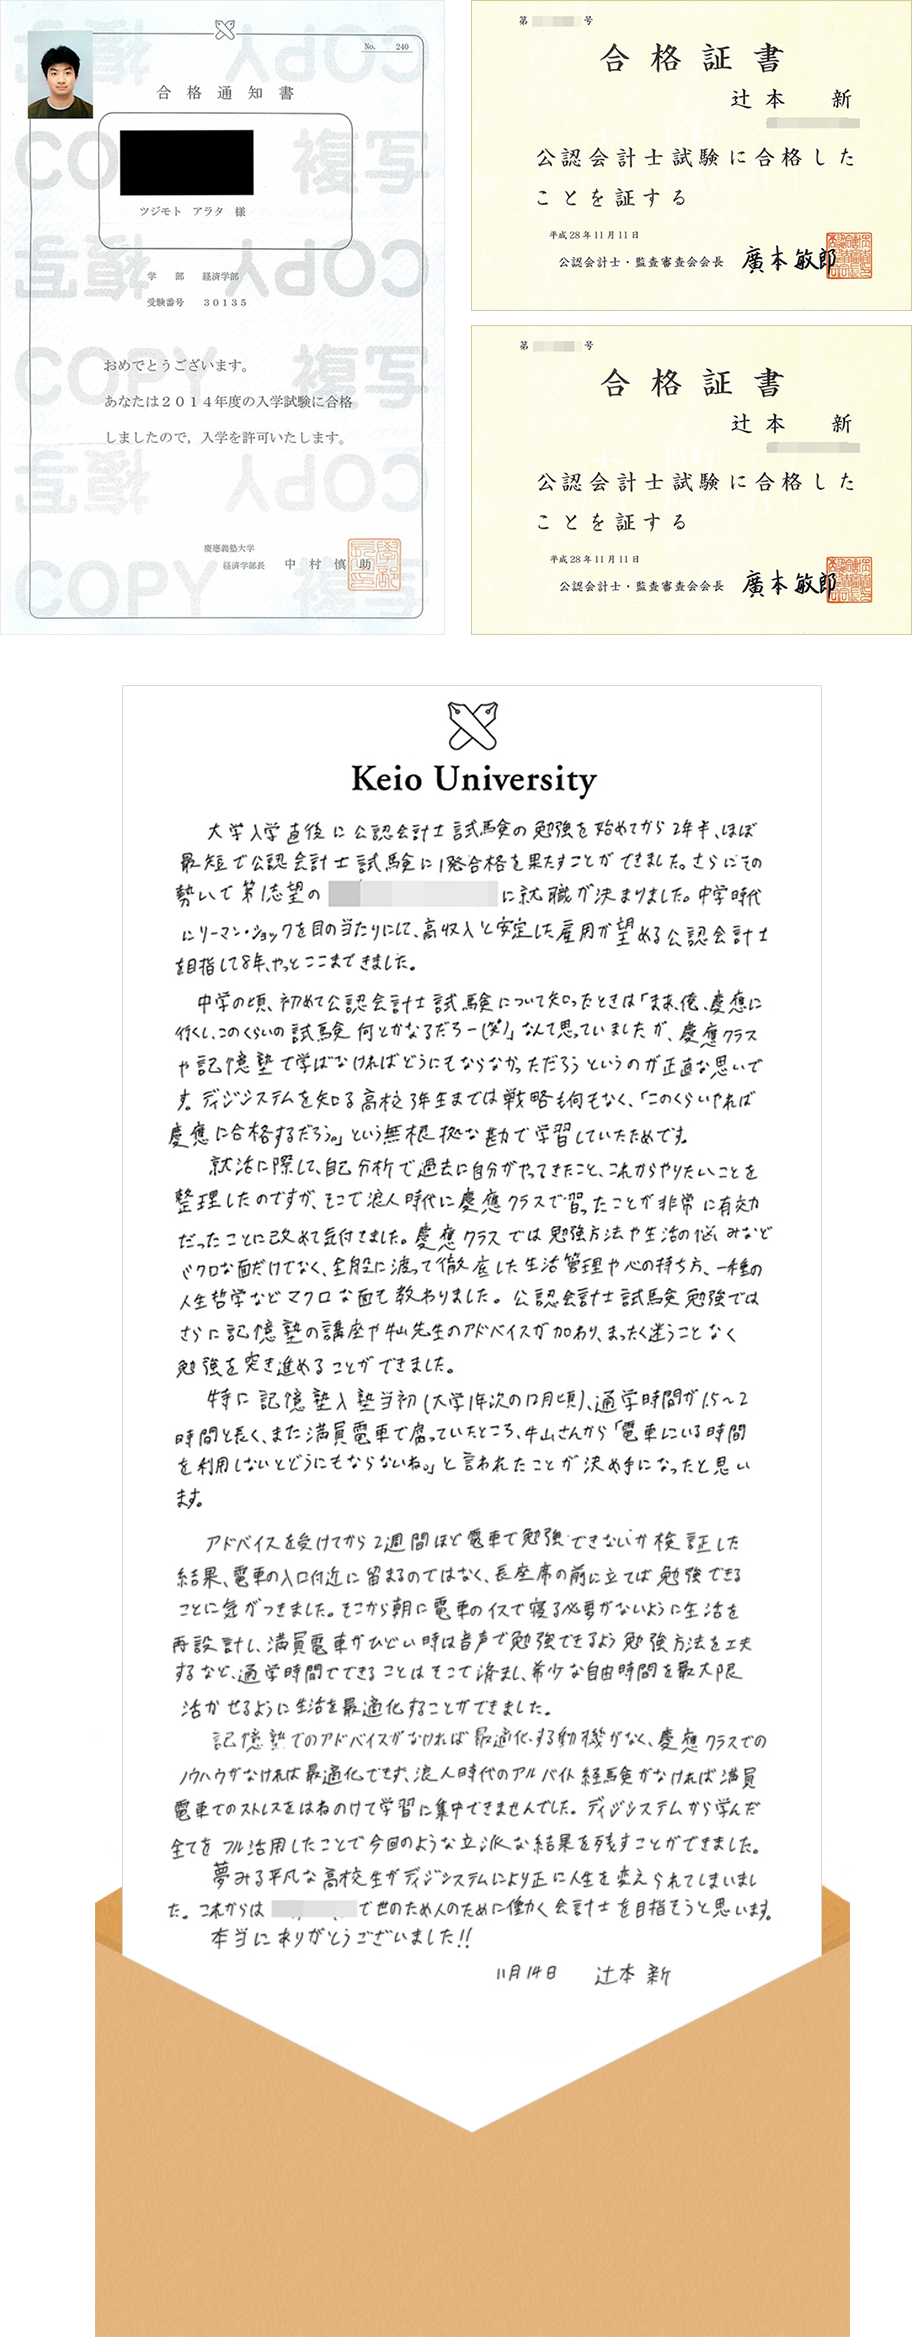 No. 240
合格通知書
ツジモト アラタ 様
学 部 経済学部
受験番号 30135
おめでとうございます。
あなたは2014年度の入学試験に合格
しましたので，入学を許可いたします。
慶應義塾大学
経済学部長 中村慎助
COPY 複写
COPY 複写
COPY 複写
COPY 複写
COPY 複写
COPY 複写
第 号
合格証書
辻本 新
公認会計士試験に合格した
ことを証する
平成28年11月11日
公認会計士・監査審査会会長 廣本敏郎
第 号
合格証書
辻本 新
公認会計士試験に合格した
ことを証する
平成28年11月11日
公認会計士・監査審査会会長 廣本敏郎
Keio University
大学入学直後に公認会計士試験の勉強を始めてから2年半、ほぼ
最短で公認会計士試験に1発合格を果たすことができました。さらにその
勢いで第1志望の に就職が決まりました。中学時代
にリーマン・ショックを目の当たりにして、高収入と安定した雇用が望める公認会計士
を目指して8年、やっとここまできました。
中学の頃、初めて公認会計士試験について知ったときは「まあ、俺、慶應に
行くし、このくらいの試験何とかなるだろー(笑)」なんて思っていましたが、慶應クラス
や記憶塾で学ばなければどうにもならなかっただろうというのが正直な思いで
す。ディジシステムを知る高校3年生までは戦略も何もなく、「このくらいやれば
慶應に合格するだろう。」という無根拠な勘で学習していたためです。
就活に際して、自己分析で過去に自分がやってきたこと、これからやりたいことを
整理したのですが、そこで浪人時代に慶應クラスで習ったことが非常に有効
だったことに改めて気付きました。慶應クラスでは勉強方法や生活の悩みなど
ミクロな面だけでなく、全般に渡って徹底した生活管理や心の持ち方、一種の
人生哲学などマクロな面も教わりました。公認会計士試験勉強では
さらに記憶塾の講座や牛山先生のアドバイスが加わり、まったく迷うことなく
勉強を突き進めることができました。
特に記憶塾入塾当初(大学1年次の12月頃)、通学時間が1.5〜2
時間と長く、また満員電車で腐っていたところ、牛山さんから「電車にいる時間
を利用しないとどうにもならないね。」と言われたことが決め手になったと思い
ます。
アドバイスを受けてから2週間ほど電車で勉強できないか検証した
結果、電車の入口付近に留まるのではなく、長座席の前に立てば勉強できる
ことに気がつきました。そこから朝に電車のイスで寝る必要がないように生活を
再設計し、満員電車がひどい時は音声で勉強できるよう勉強方法を工夫
するなど、通学時間でできることはそこで済まし、希少な自由時間を最大限
活かせるように生活を最適化することができました。
記憶塾でのアドバイスがなければ最適化する動機がなく、慶應クラスでの
ノウハウがなければ最適化できず、浪人時代のアルバイト経験がなければ満員
電車でのストレスをはねのけて学習に集中できませんでした。ディジシステムから学んだ
全てをフル活用したことで今回のような立派な結果を残すことができました。
夢みる平凡な高校生がディジシステムにより正に人生を変えられてしまいまし
た。これからは で世のため人のために働く会計士を目指そうと思います。
本当にありがとうございました!!
11月14日 辻本 新